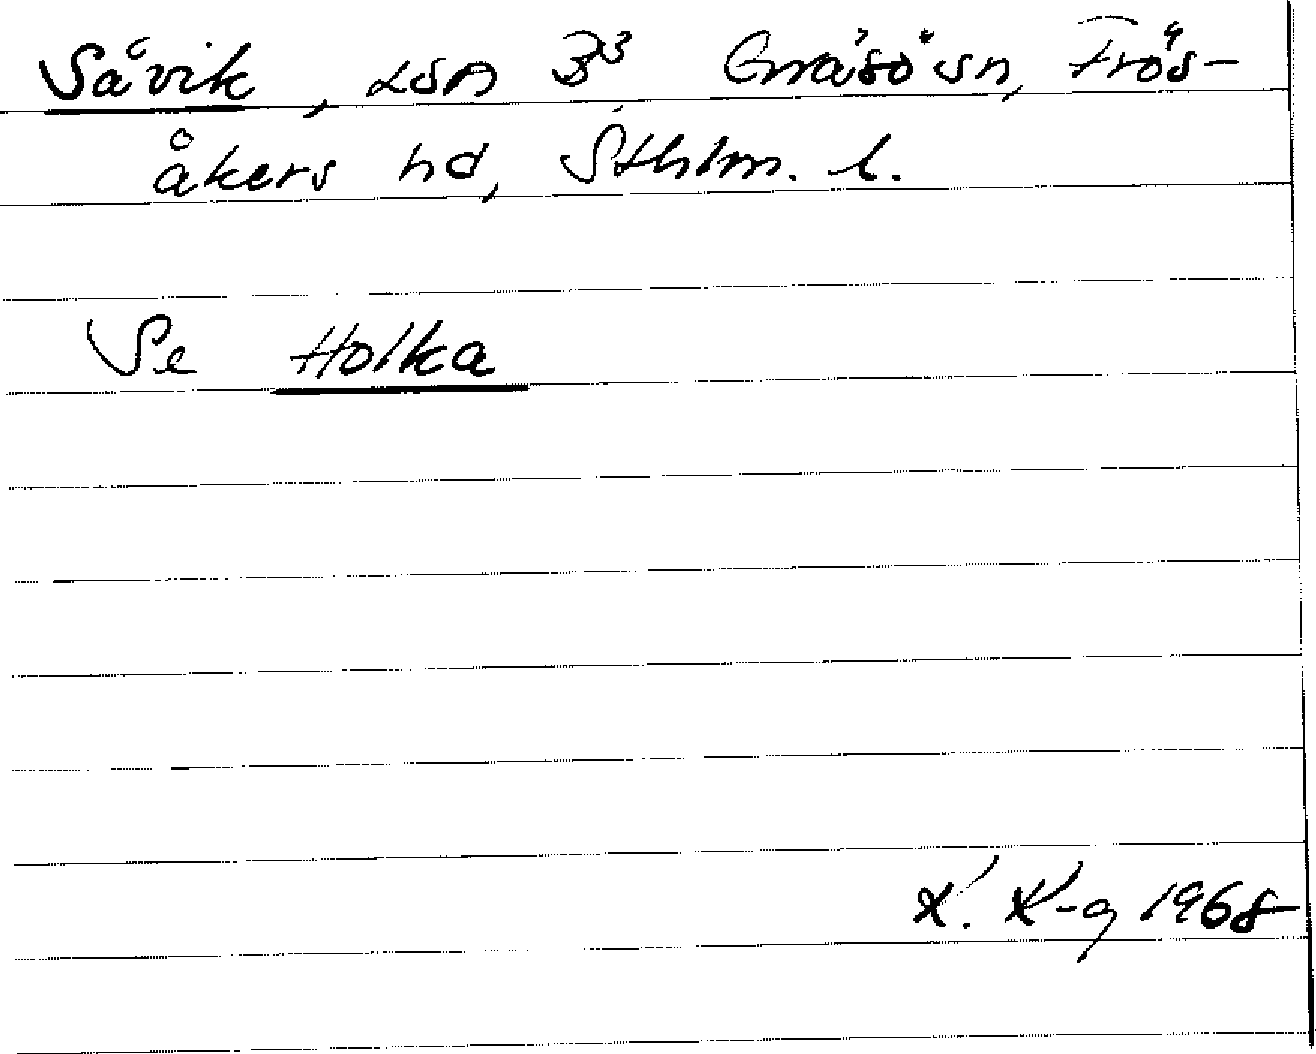 Såvik, lsn 3³ Gräsö sn, Frös-
åkers hd, Sthlm. l.
Se Holka
K. K-g 1968